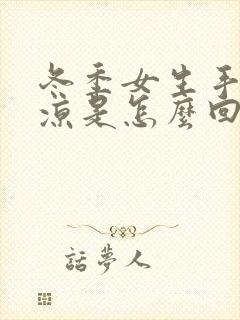 冬季女生手
涼是怎麼回
話夢人